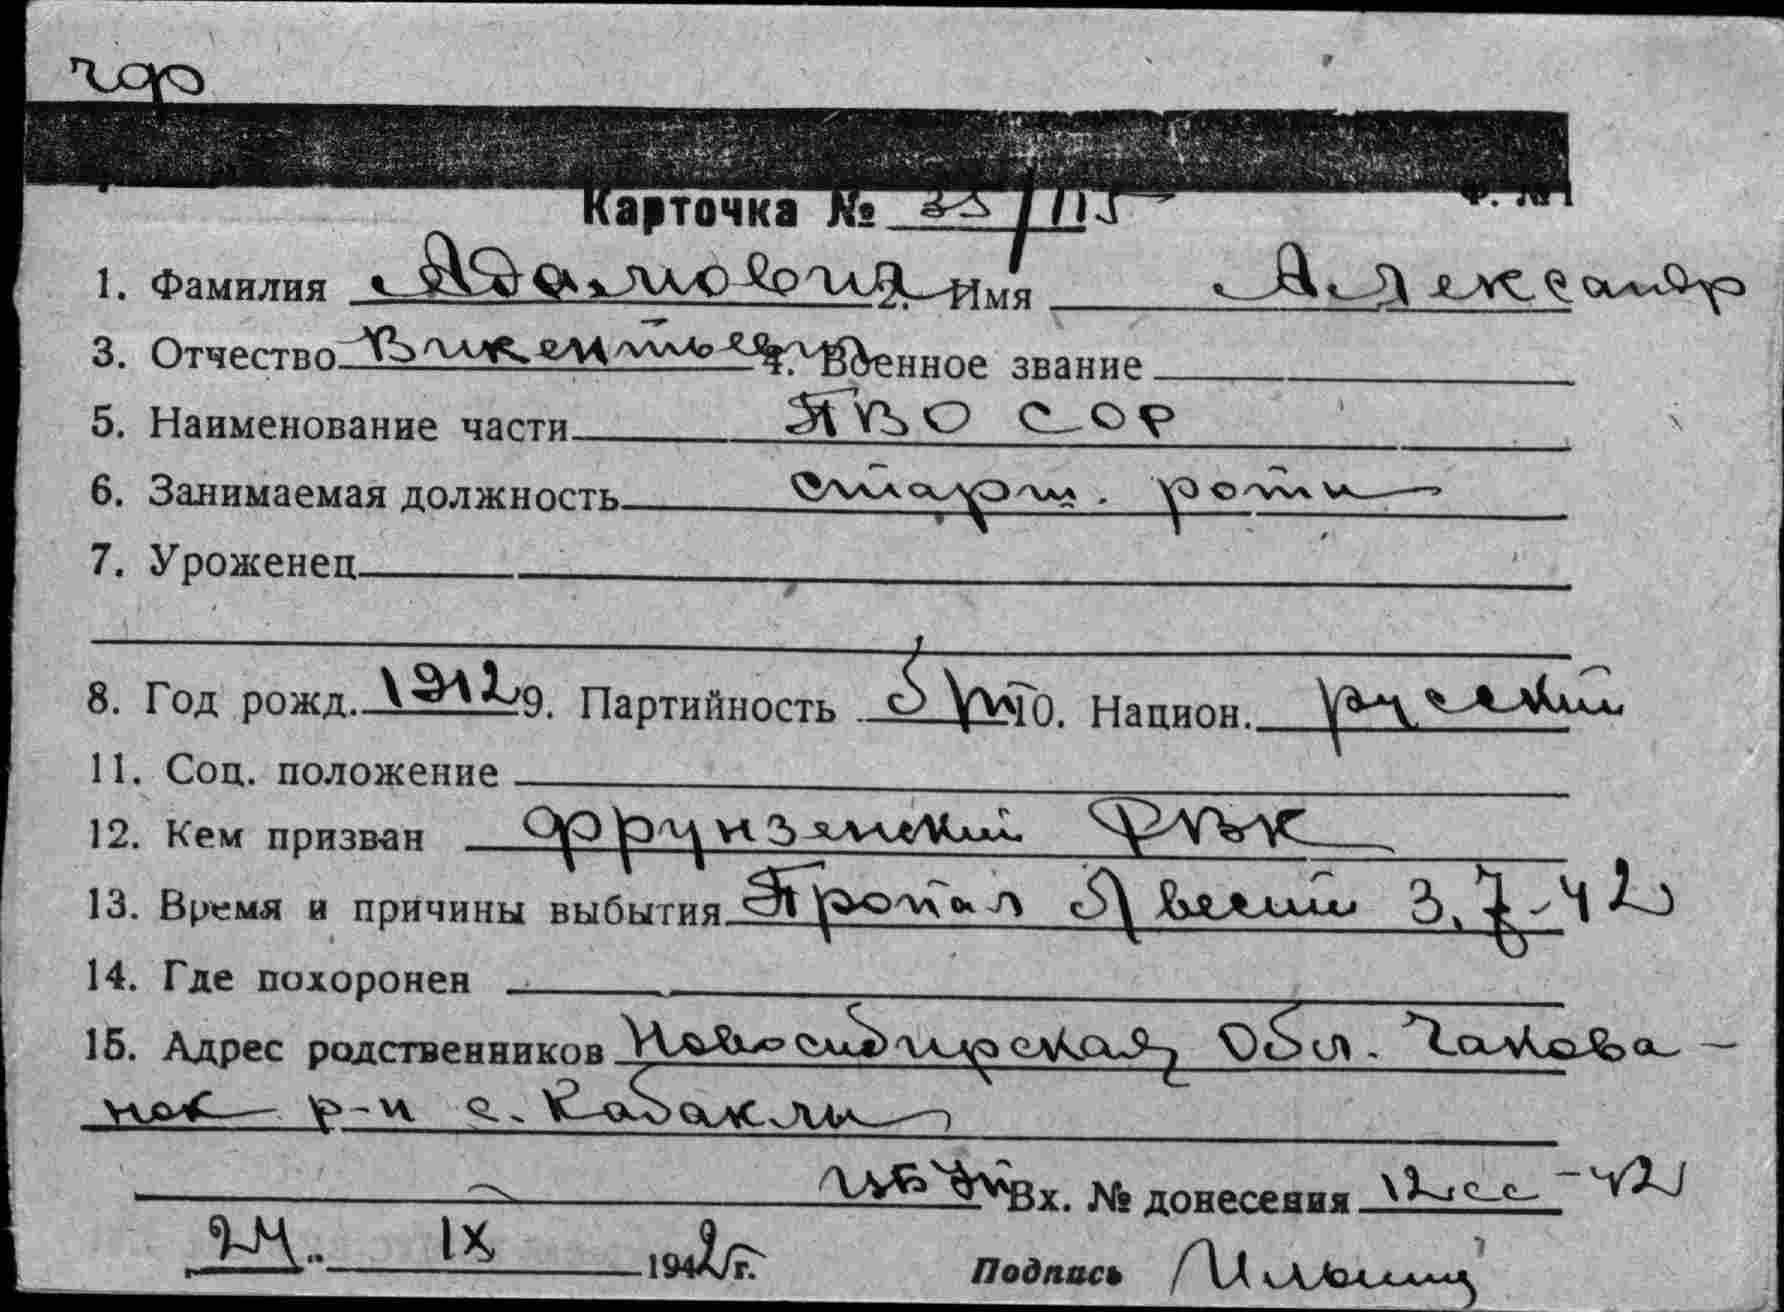 чдр
Карточка № 35/115
1. Фамилия Адамович 2. Имя Александр
3. Отчество Викентьевич 4. Военное звание
5. Наименование части ПВО СОР
6. Занимаемая должность старш. роты
7. Уроженец
8. Год рожд. 1912 9. Партийность б/п 10. Национ. русский
11. Соц. положение
12. Кем призван Фрунзенский РВК
13. Время и причины выбытия Пропал б/вести 3.7-42
14. Где похоронен
15. Адрес родственников Новосибирская Обл. Чанова-
нск р-н с. Кабаклы
Вх. № донесения 12сс-42
24 IX 1942 г. Подпись Ильины